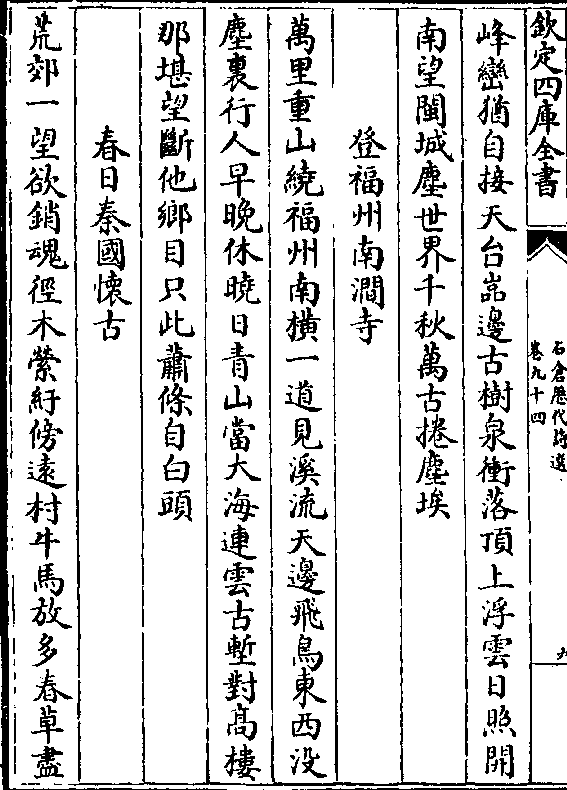 欽定四庫全書
石倉歷代詩選
卷九十四
九
峰巒猶自接天台嵓邊古樹泉衝落頂上浮雲日照開
南望閩城塵世界千秋萬古捲塵埃
登福州南澗寺
萬里重山繞福州南橫一道見溪流天邊飛鳥東西没
塵裏行人早晚休曉日青山當大海連雲古塹對髙樓
那堪望斷他鄉目只此蕭條自白頭
春日秦國懷古
荒郊一望欲銷魂徑木縈紆傍遠村牛馬放多春草盡